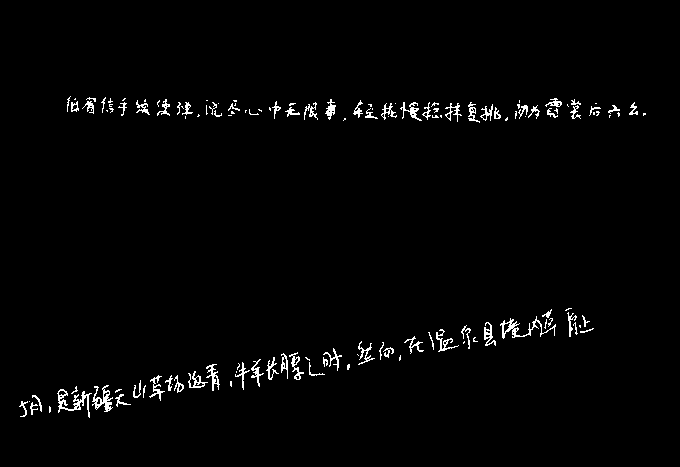 低眉信手续续弹,说尽心中无限事,轻拢慢捻抹复挑,初为霓裳后六幺。
5月,是新疆天山草场返青,牛羊长膘之时,然而,在温泉县境内草原上